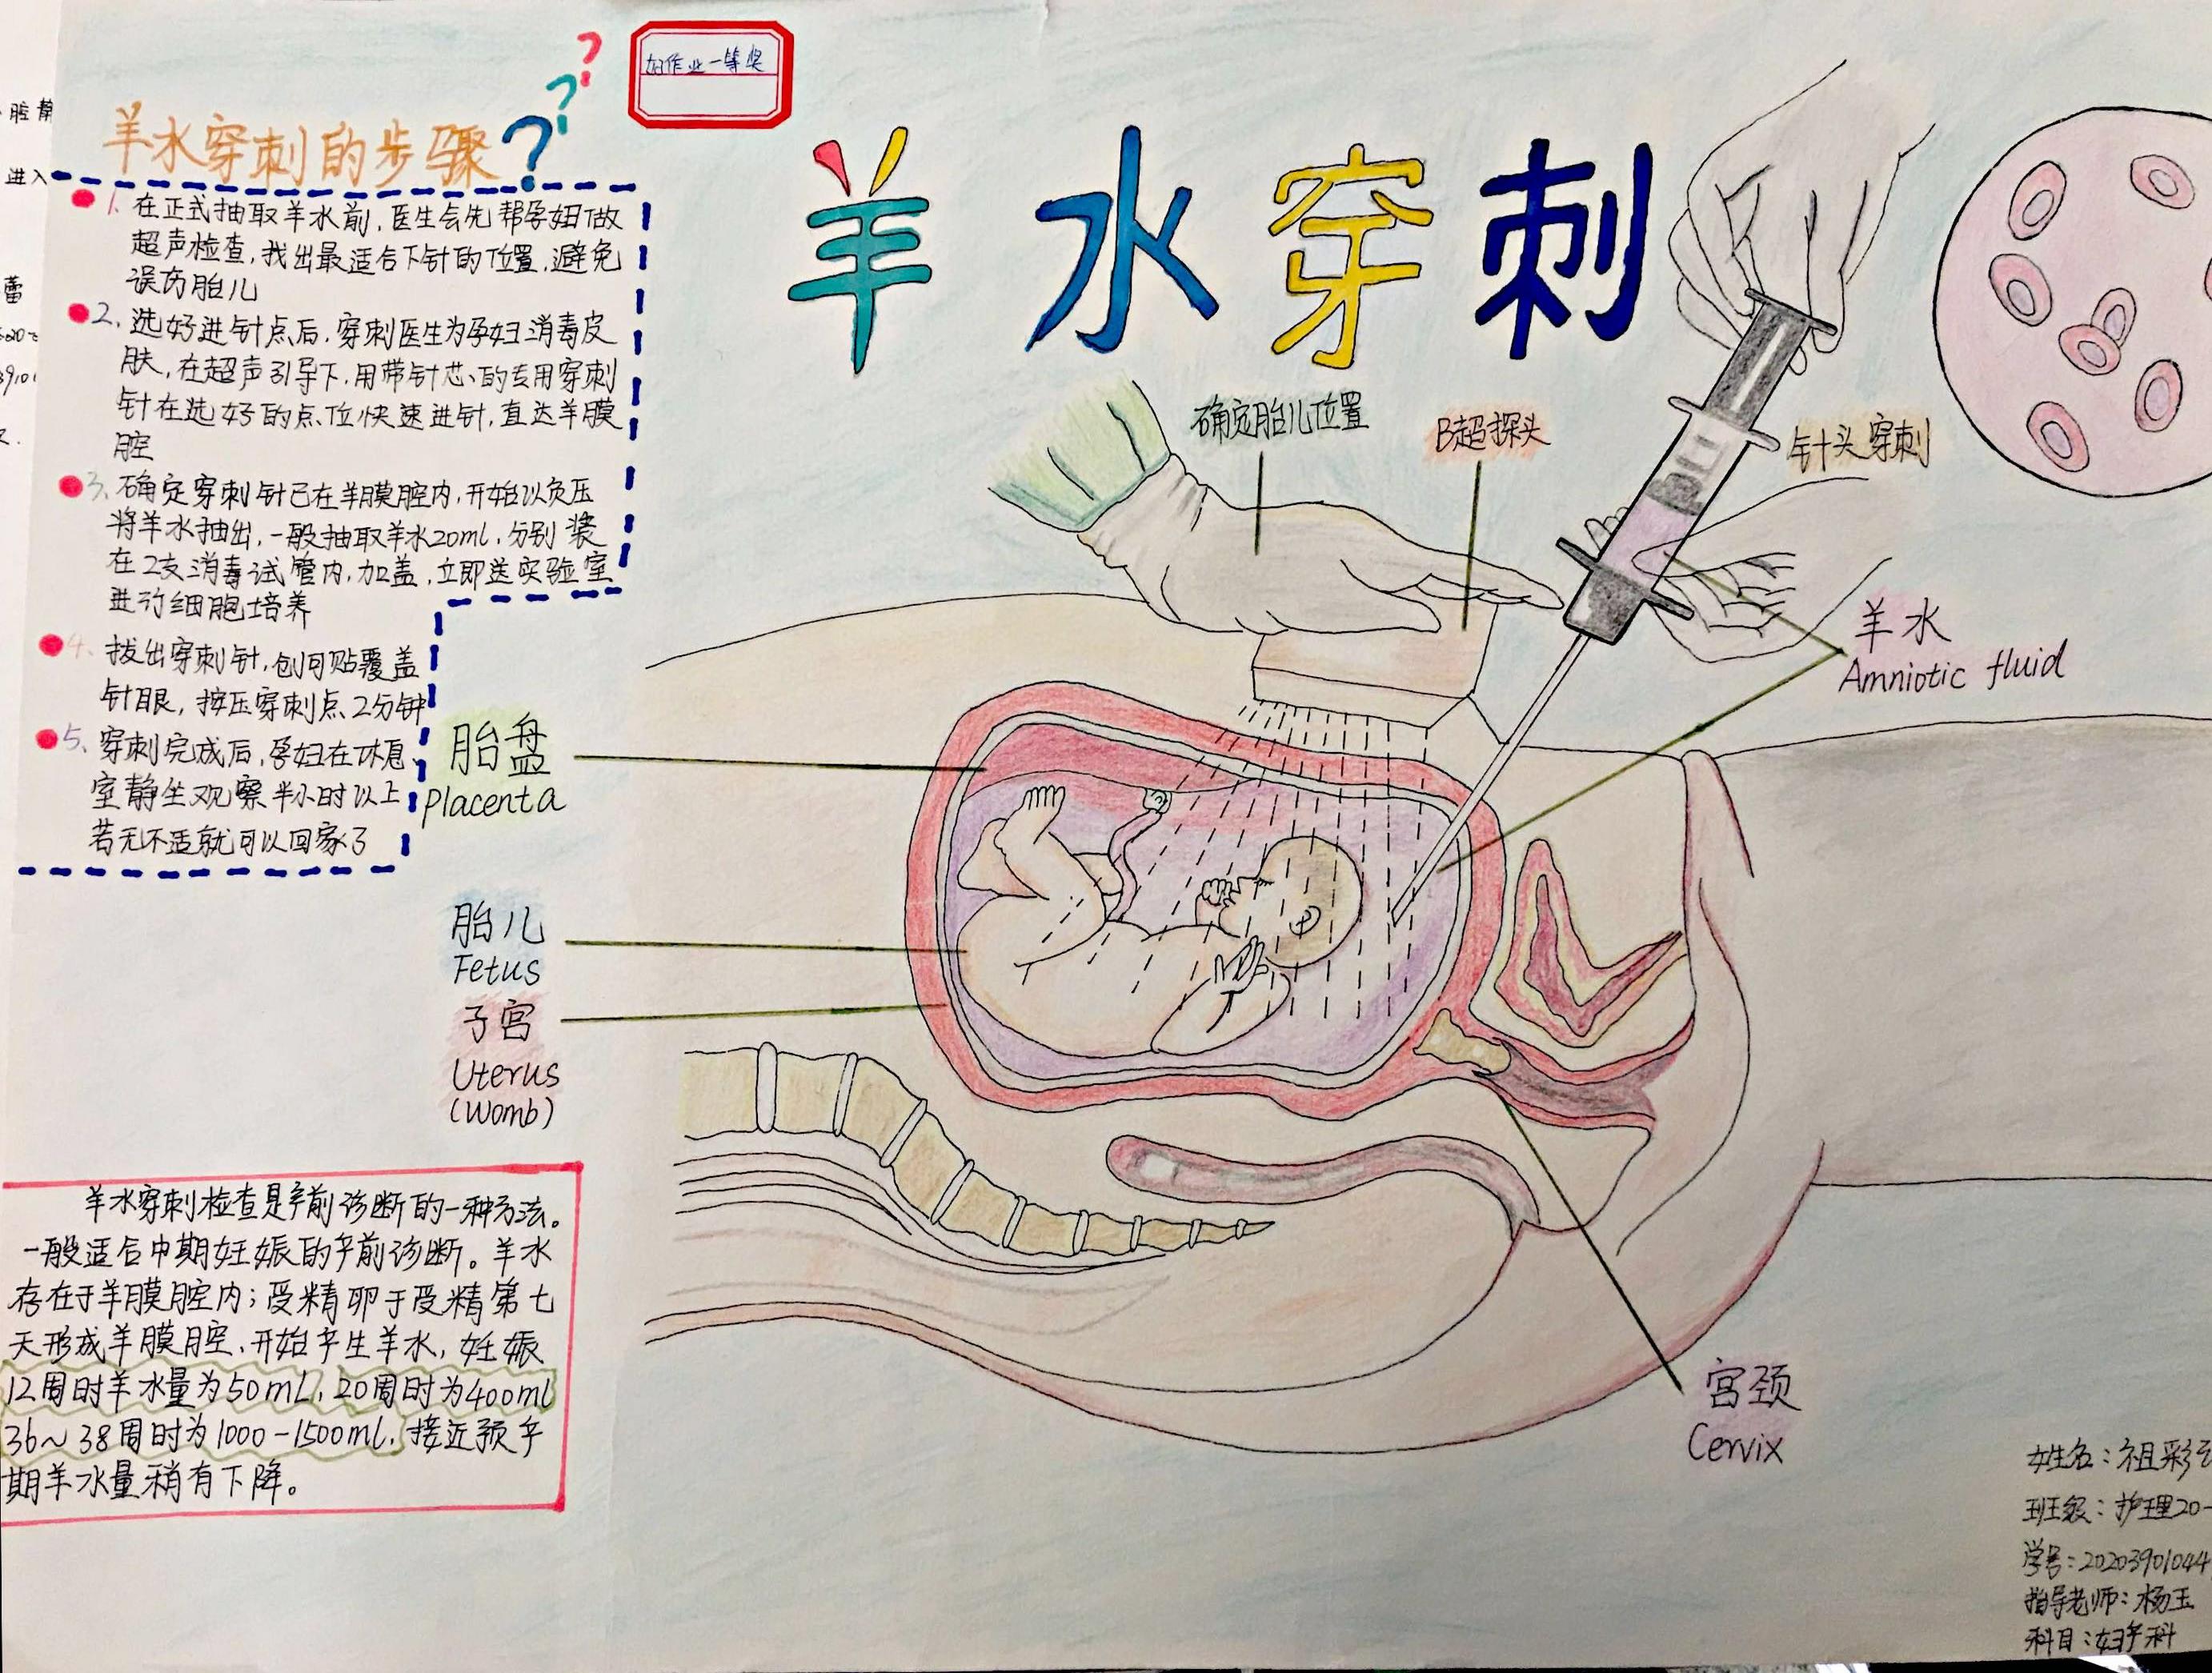 好作业一等奖
羊水穿刺的步骤???
羊水穿刺
1.在正式抽取羊水前,医生会先帮孕妇做
超声检查,找出最适合下针的位置,避免
误伤胎儿
2.选好进针点后,穿刺医生为孕妇消毒皮
肤,在超声引导下,用带针芯的专用穿刺
针在选好的点位快速进针,直达羊膜
腔
3.确定穿刺针已在羊膜腔内,开始以负压
将羊水抽出,一般抽取羊水20ml,分别装
在2支消毒试管内,加盖,立即送实验室
进行细胞培养
4.拔出穿刺针,创可贴覆盖
针眼,按压穿刺点2分钟
5、穿刺完成后,孕妇在休息
室静坐观察半小时以上
若无不适就可以回家了
确定胎儿位置
B超探头
针头穿刺
羊水
Amniotic fluid
胎盘
placenta
胎儿
Fetus
子宫
Uterus
(Womb)
宫颈
Cervix
羊水穿刺检查是产前诊断的一种方法。
一般适合中期妊娠的产前诊断。羊水
存在于羊膜腔内;受精卵于受精第七
天形成羊膜腔,开始产生羊水,妊娠
12周时羊水量为50mL,20周时为400ml
36~38周时为1000-1500ml,接近预产
期羊水量稍有下降。
姓名:祖彩
班级:护理20-
学号:20203901044
指导老师:杨玉
科目:妇产科
腔静
进入
蕾